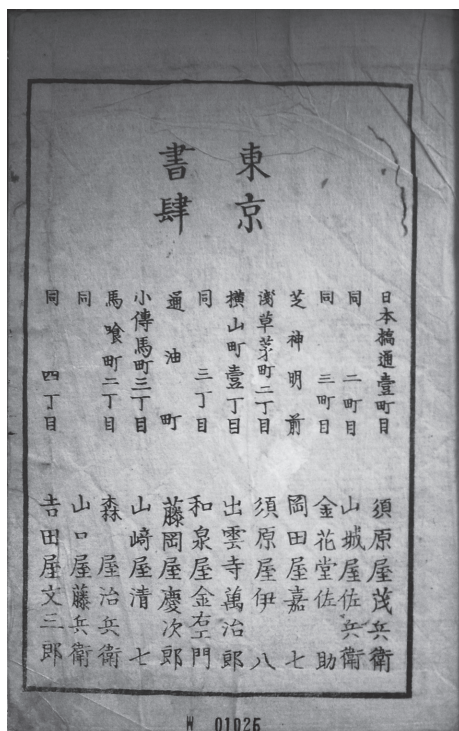 東京
書肆
日本橋通壹町目 須原屋茂兵衛
同 二町目 山城屋佐兵衛
同 三町目 金花堂佐助
芝神明前 岡田屋嘉七
淺草茅町二丁目 須原屋伊八
横山町壹丁目 出雲寺萬治郎
同 三丁目 和泉屋金右エ門
通油町 藤岡屋慶次郎
小傳馬町三丁目 山﨑屋清七
馬喰町二丁目 森屋治兵衛
同 山口屋藤兵衛
同 四丁目 吉田屋文三郎
W 01025